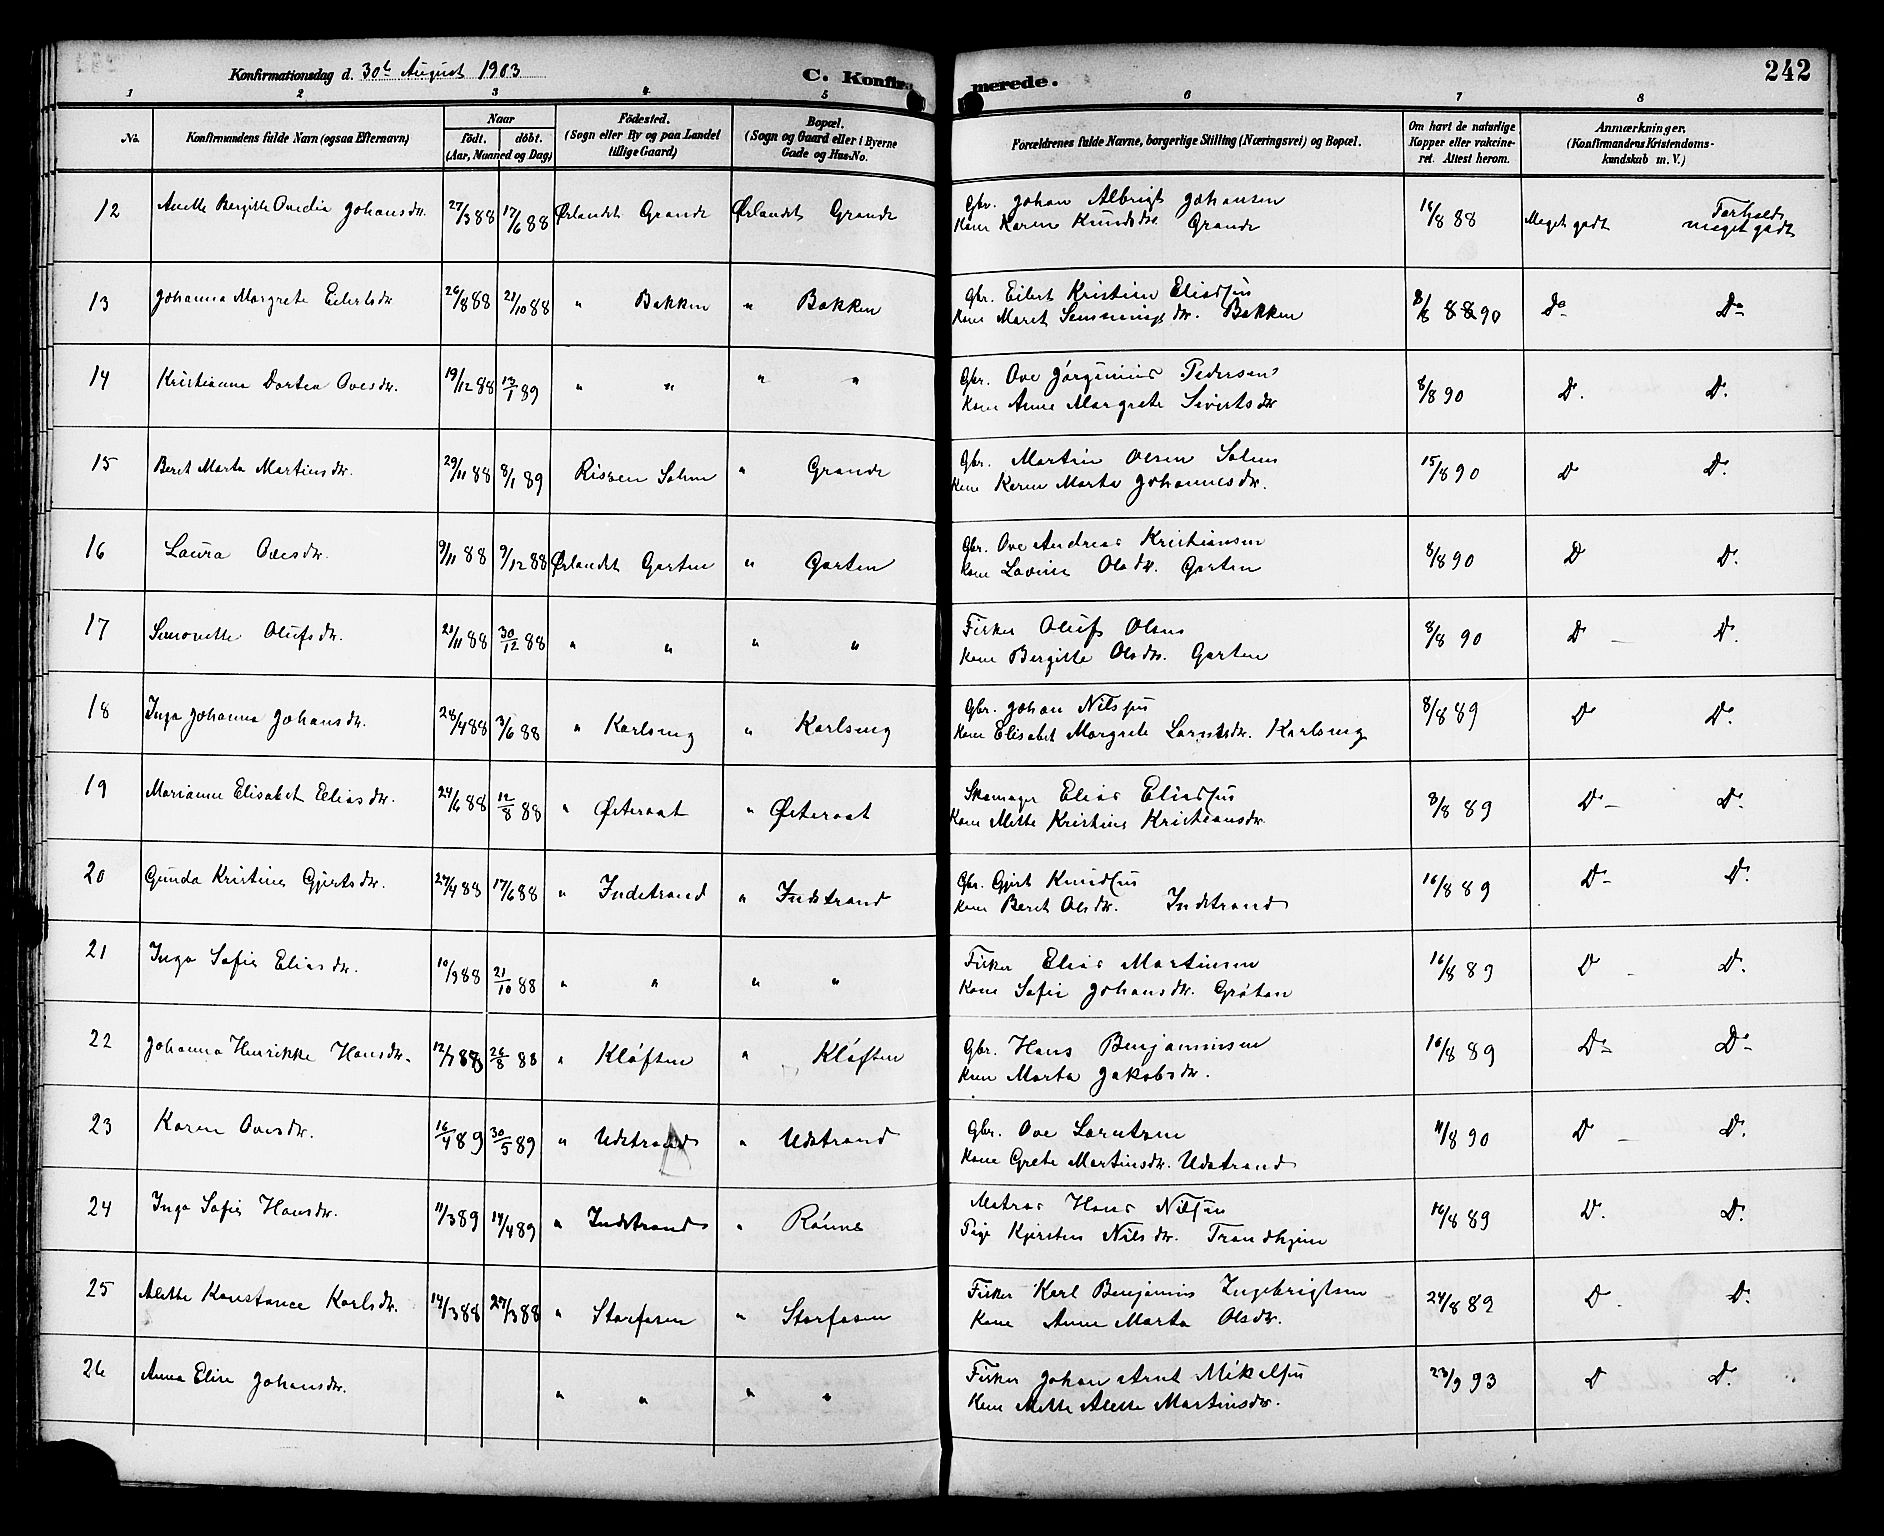 Konfirmationsdag d. 30te August 1903
C. Konfirmerede.
242
1 2 3 4 5 6 7 8
No.
Konfirmandens fulde Navn (ogsaa Efternavn)
Naar
födt. döbt.
(Aar, Maaned og Dag)
Födested.
(Sogn eller By og paa Landet
tillige Gaard)
Bopæl.
(Sogn og Gaard eller i Byerne
Gade og Hus-No.
Forældrenes fulde Navne, borgerlige Stilling (Næringsvei) og Bopæl.
Om havt de naturlige
Kopper eller vakcine-
ret. Attest herom.
Anmærkninger.
(Konfirmandens Kristendoms-
kundskab m. V.)
12 Anette Bergitte Ovedia Johansdtr. 27/3 88 17/6 88 Ørlandet Grande Ørlandet Grande Gbr. Johan Albrigt Johansen 16/8 88 Meget godt Forhold
Kone Karen Knudsdtr Grande meget godt
13 Johanna Margrete Eilertsdtr 26/8 88 21/10 88 " Bakken " Bakken Gbr. Eilert Kristian Eliassen 8/8 88 90 Do Do
Kone Maret Semmingsdtr. Bakken
14 Kristianna Dortea Ovesdtr. 19/12 88 13/1 89 " " " " Gbr. Ove Jørginius Pedersen 8/8 90 Do. Do.
Kone Anne Margrete Sivertsdtr
15 Beret Marta Martinsdtr. 29/11 88 8/1 89 Rissen Solem " Grande Gbr. Martin Olsen Solem 15/8 90 Do Do.
Kone Karen Marta Johannesdtr.
16 Laura Ovesdtr. 9/11 88 9/12 88 Ørlandet Garten " Garten Gbr. Ove Andreas Kristiansen 8/8 90 Do Do.
Kone Lovise Olsdtr. Garten
17 Simonette Olufsdtr. 21/11 88 30/12 88 " " " " Fisker Oluf Olsen 8/8 90 Do Do.
Kone Bergitte Olsdtr. Garten
18 Inga Johanna Johansdtr. 28/4 88 3/6 88 " Karlseng " Karlseng Gbr. Johan Nilssen 8/8 89 Do Do.
Kone Elisabet Margrete Larntsdtr. Karlseng
19 Marianne Elisabet Eliasdtr. 24/6 88 12/8 88 " Østeraat " Østeraat Skomager Elias Eliassen 8/8 89 Do Do.
Kone Mette Kristine Kristiansdtr
20 Gunda Kristine Gjertsdtr. 27/4 88 17/6 88 " Indstrand " Indstrand Gbr. Gjert Knudssen 16/8 89 Do Do.
Kone Beret Olsdtr. Indstrand
21 Inga Sofie Eliasdtr. 10/9 88 21/10 88 " " " " Fisker Elias Martinsen 16/8 89 Do Do.
Kone Sofie Johansdtr. Grøtan
22 Johanna Henrikke Hansdtr. 12/7 88 26/8 88 " Kløften " Kløften Gbr. Hans Benjaminsen 16/8 89 Do Do
Kone Marta Jakobsdtr.
23 Karen Ovesdtr. 16/4 89 30/5 89 " Udstrand " Udstrand Gbr. Ove Larntsen 11/8 90 Do Do.
Kone Grete Martinsdtr. Udstrand
24 Inga Sofie Hansdtr. 11/3 89 14/4 89 " Indstrand " Rønne Matros Hans Nilssen 16/8 89 Do. Do.
Pige Kjersten Nilsdtr. Trondhjem
25 Alette Konstance Karlsdtr. 14/3 88 27/3 88 " Storfosen " Storfosen Fisker Karl Benjamin Ingebrigtsen 24/8 89 Do. Do.
Kone Anne Marta Olsdtr.
26 Anna Elise Johansdtr. " " " " Fisker Johan Arnt Mikalsen 23/9 93 Do Do.
Kone Mette Alette Martinsdtr.